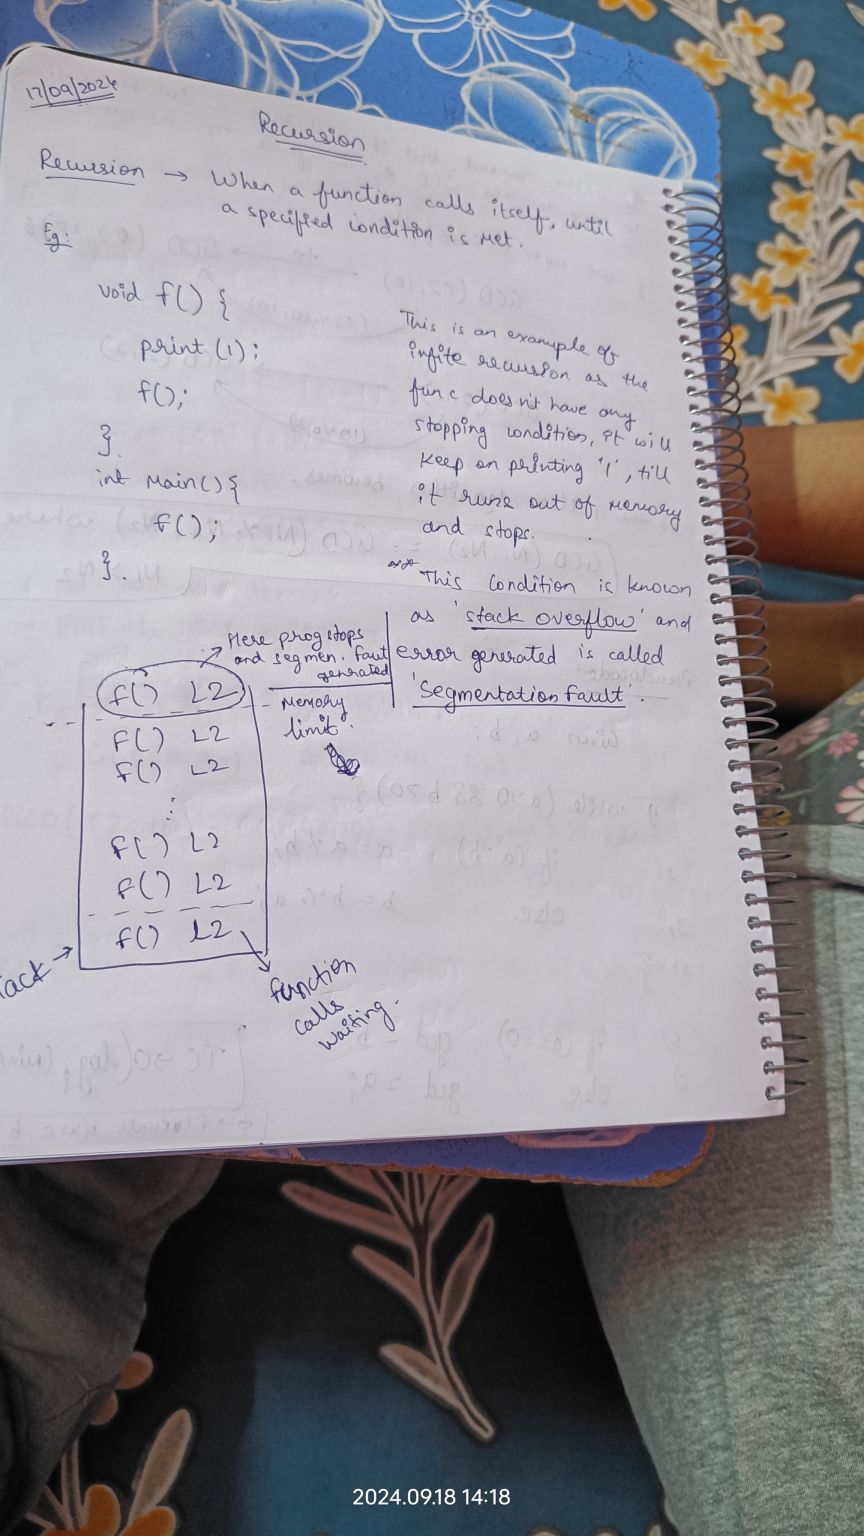 17/09/2024
Recursion
Recursion → When a function calls itself, until
a specified condition is met.
Eg:
void f() {
print (1);
f();
}
int main() {
f();
}.
This is an example of
infite recursion as the
func doesn't have any
stopping condition, it will
keep on printing '1', till
it runs out of memory
and stops.
** This condition is known
as 'stack overflow' and
error generated is called
'Segmentation Fault'.
Here prog stops
and segmen. faut
genrated
Memory
limit.
f() L2
f() L2
f() L2
⋮
f() L2
f() L2
f() L2
function
calls
waiting.
2024.09.18 14:18